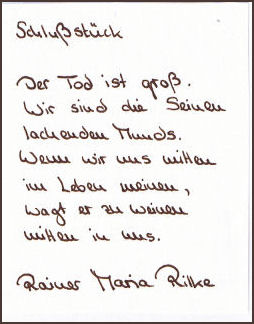 Schlußstück
Der Tod ist groß.
Wir sind die Seinen
lachenden Munds.
Wenn wir uns mitten
im Leben meinen,
wagt er zu weinen
mitten in uns.
Rainer Maria Rilke